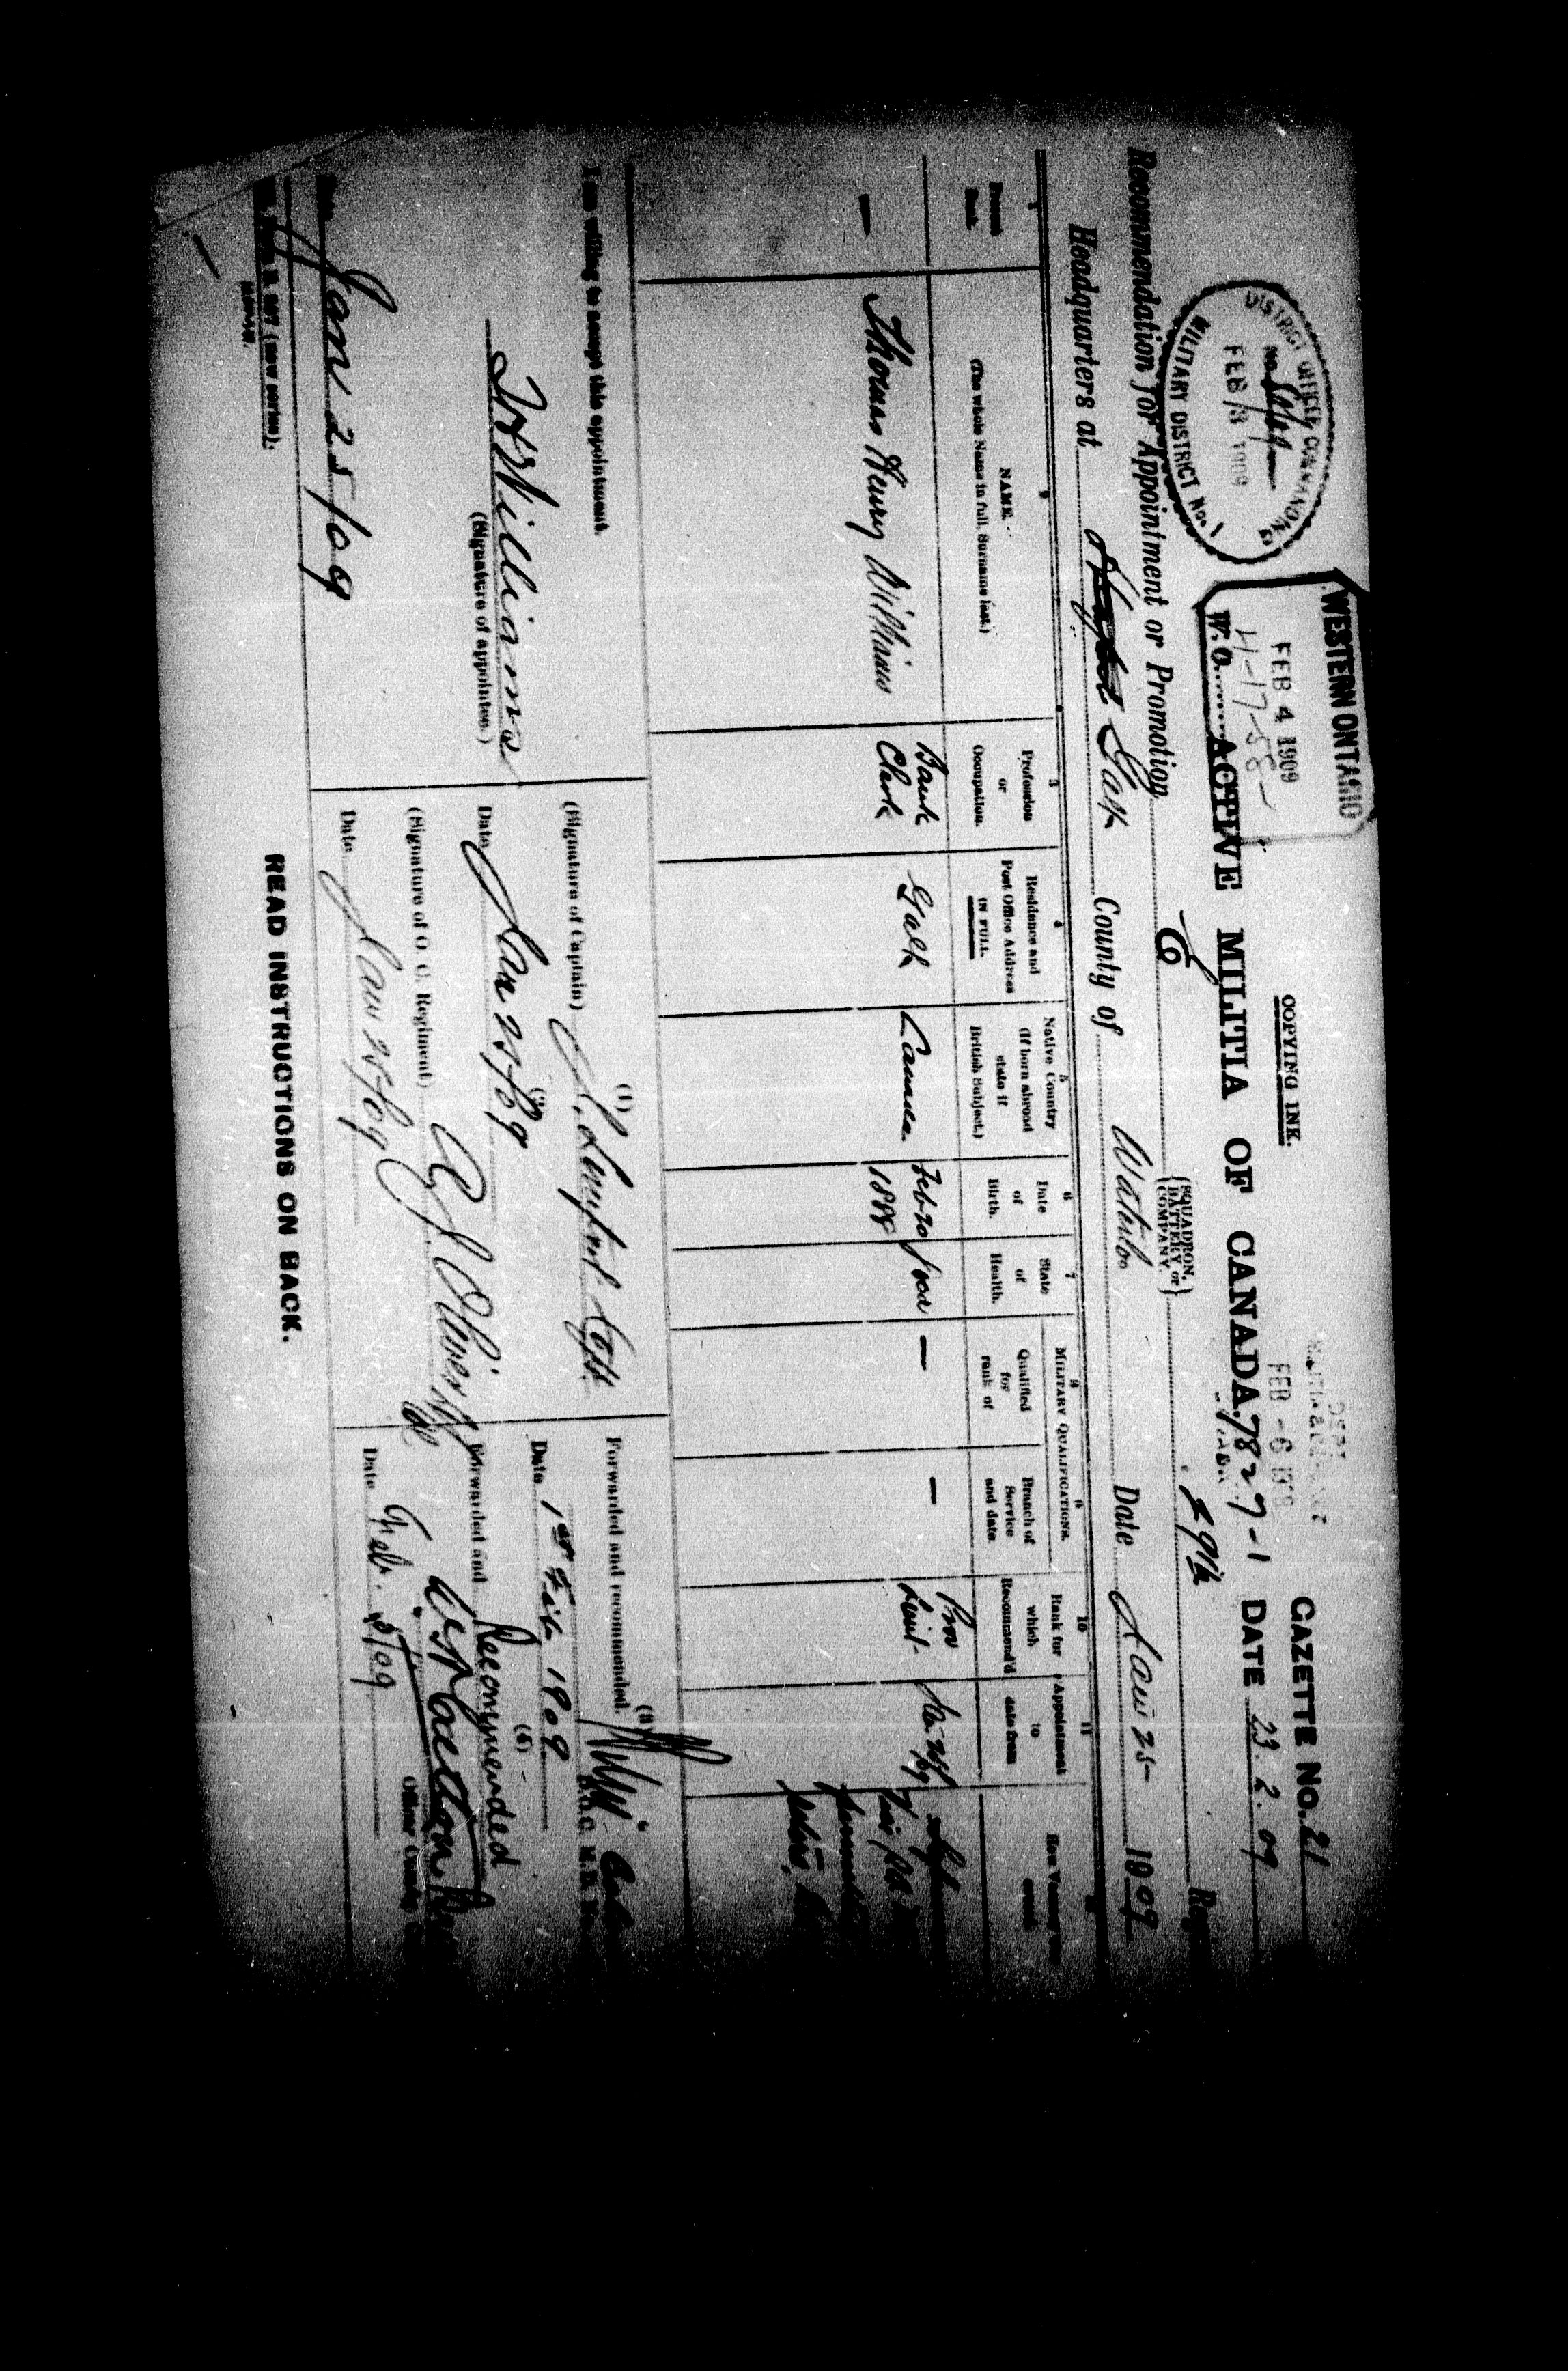 WESTERN ONTARIO
FEB 4 1909
H-17-58-
W.O.
DISTRICT OFFICER COMMANDING
No.
FEB 3 1909
MILITARY DISTRICT No. 1
COPYING INK.
FEB -6 1909
GAZETTE No. 21
ACTIVE MILITIA OF CANADA, 7827-1 DATE 23.2.09
Recommendation for Appointment or Promotion G {SQUADRON, BATTERY or COMPANY} 29th
Headquarters at Galt County of Waterloo Date Jan 25- 1909
1
Present Rank
2
NAME.
(The whole Name in full, Surname last.)
3
Profession or Occupation.
4
Residence and Post Office Address IN FULL.
5
Native Country (If born abroad state if British Subject.)
6
Date of Birth.
7
State of Health.
MILITARY QUALIFICATIONS.
8
Qualified for rank of
9
Branch of Service and date.
10
Rank for which Recommend'd
11
Appointment to date from
How Vacated
— Thomas Henry Williams Bank Clerk Galt Canada Feb 20 1888 Good — — Prov Lieut-
I am willing to accept this appointment.
T H Williams
(Signature of appointee.)
Date Jan 25/09
(Signature of Captain) (1)
Date Jan 25/09
(2)
(Signature of O. C. Regiment)
Date Jan 25/09
Forwarded and recommended. (3)
D.O.C. M.D.
Date 1st Feb 1909
Forwarded and Recommended
Date Feb. 5/09
(new series).
READ INSTRUCTIONS ON BACK.